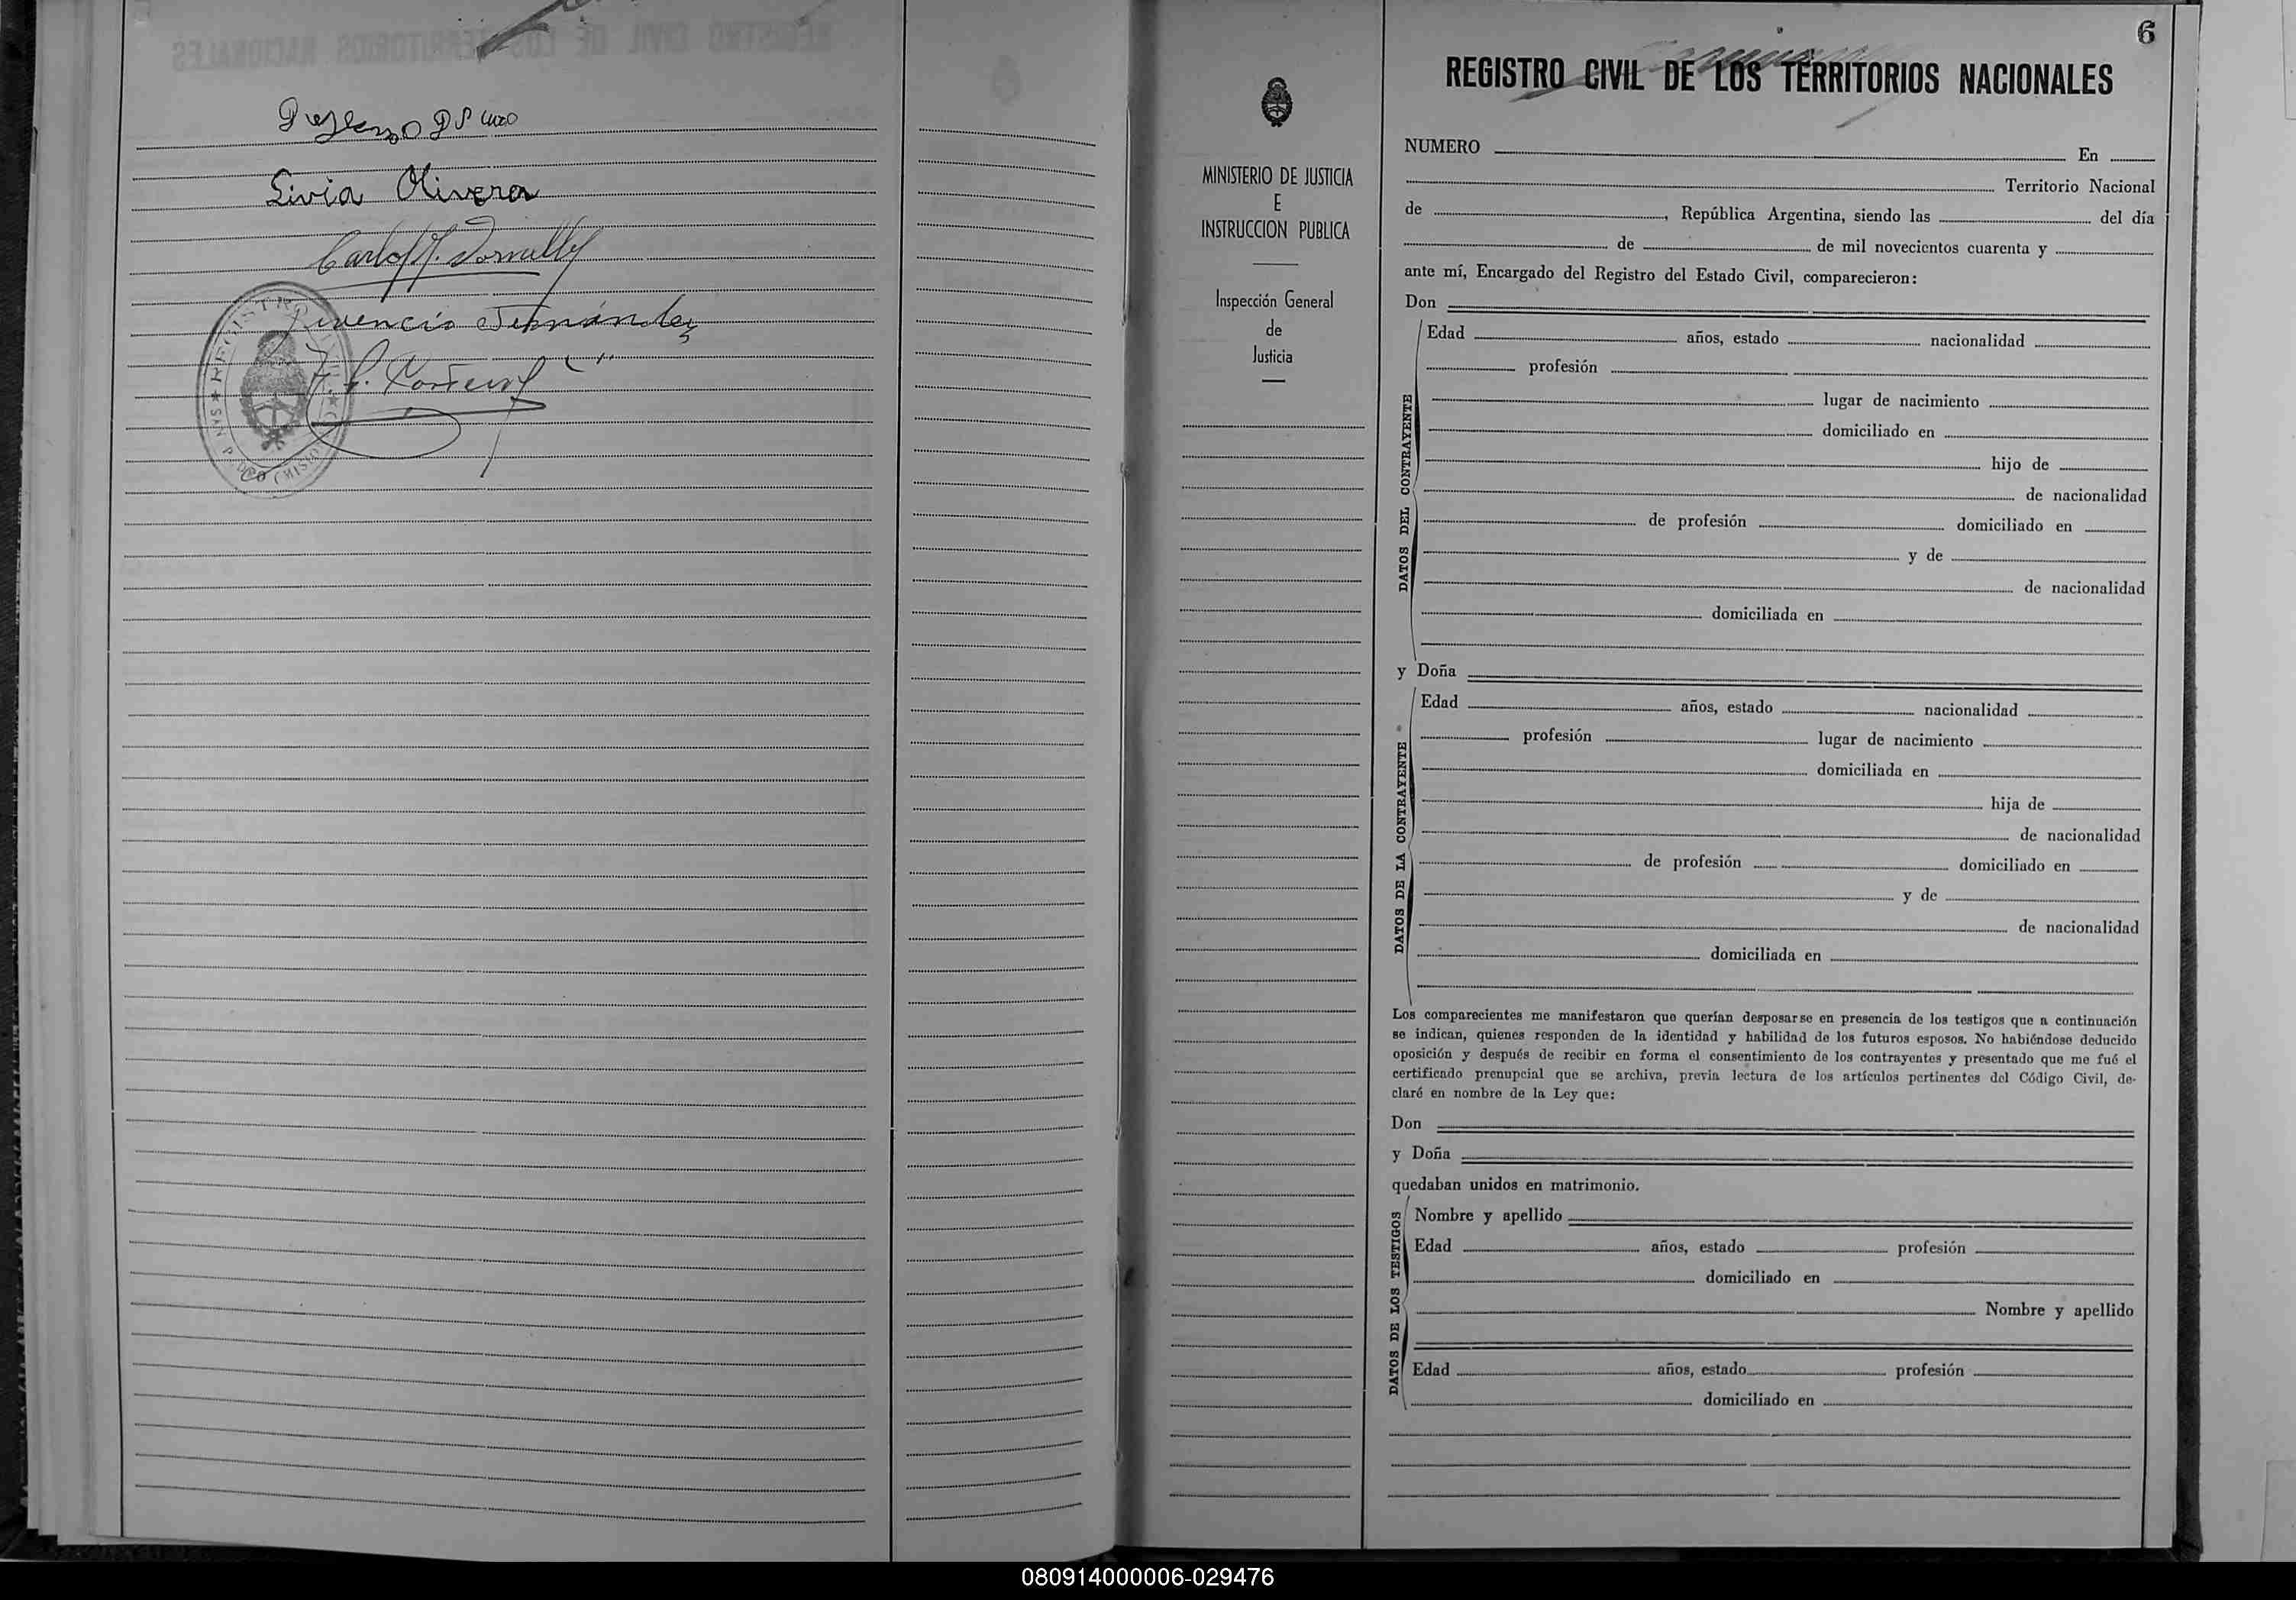 Livia Olivera
Carlos
Fernández
REGISTRO
SAN PEDRO (MISIONES)
MINISTERIO DE JUSTICIA
E
INSTRUCCION PUBLICA
Inspección General
de
Justicia
6
REGISTRO CIVIL DE LOS TERRITORIOS NACIONALES
NUMERO En
Territorio Nacional
de , República Argentina, siendo las del día
de de mil novecientos cuarenta y
ante mí, Encargado del Registro del Estado Civil, comparecieron:
Don
DATOS DEL CONTRAYENTE
Edad años, estado nacionalidad
profesión
lugar de nacimiento
domiciliado en
hijo de
de nacionalidad
de profesión domiciliado en
y de
de nacionalidad
domiciliada en
y Doña
DATOS DE LA CONTRAYENTE
Edad años, estado nacionalidad
profesión lugar de nacimiento
domiciliada en
hija de
de nacionalidad
de profesión domiciliado en
y de
de nacionalidad
domiciliada en
Los comparecientes me manifestaron que querían desposarse en presencia de los testigos que a continuación
se indican, quienes responden de la identidad y habilidad de los futuros esposos. No habiéndose deducido
oposición y después de recibir en forma el consentimiento de los contrayentes y presentado que me fué el
certificado prenupcial que se archiva, previa lectura de los artículos pertinentes del Código Civil, de-
claré en nombre de la Ley que:
Don
y Doña
quedaban unidos en matrimonio.
DATOS DE LOS TESTIGOS
Nombre y apellido
Edad años, estado profesión
domiciliado en
Nombre y apellido
Edad años, estado profesión
domiciliado en
080914000006-029476